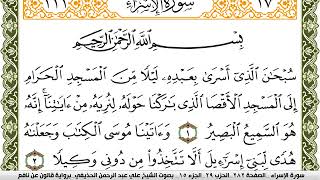 ١١١ سورة الإسراء ١٧
بِسْمِ اللَّهِ الرَّحْمَٰنِ الرَّحِيمِ
سُبْحَٰنَ الَّذِي أَسْرَىٰ بِعَبْدِهِ لَيْلًا مِّنَ الْمَسْجِدِ الْحَرَامِ
إِلَى الْمَسْجِدِ الْأَقْصَا الَّذِي بَٰرَكْنَا حَوْلَهُ لِنُرِيَهُ مِنْ ءَايَٰتِنَا إِنَّهُ
هُوَ السَّمِيعُ الْبَصِيرُ ١ وَءَاتَيْنَا مُوسَى الْكِتَٰبَ وَجَعَلْنَٰهُ
هُدًى لِّبَنِي إِسْرَٰٓءِيلَ أَلَّا تَتَّخِذُوا مِن دُونِي وَكِيلًا ٢
سورة الإسراء الصفحة ٢٨٢ الحزب ٢٩ الجزء ١٥ بصوت الشيخ علي عبد الرحمن الحذيفي برواية قالون عن نافع